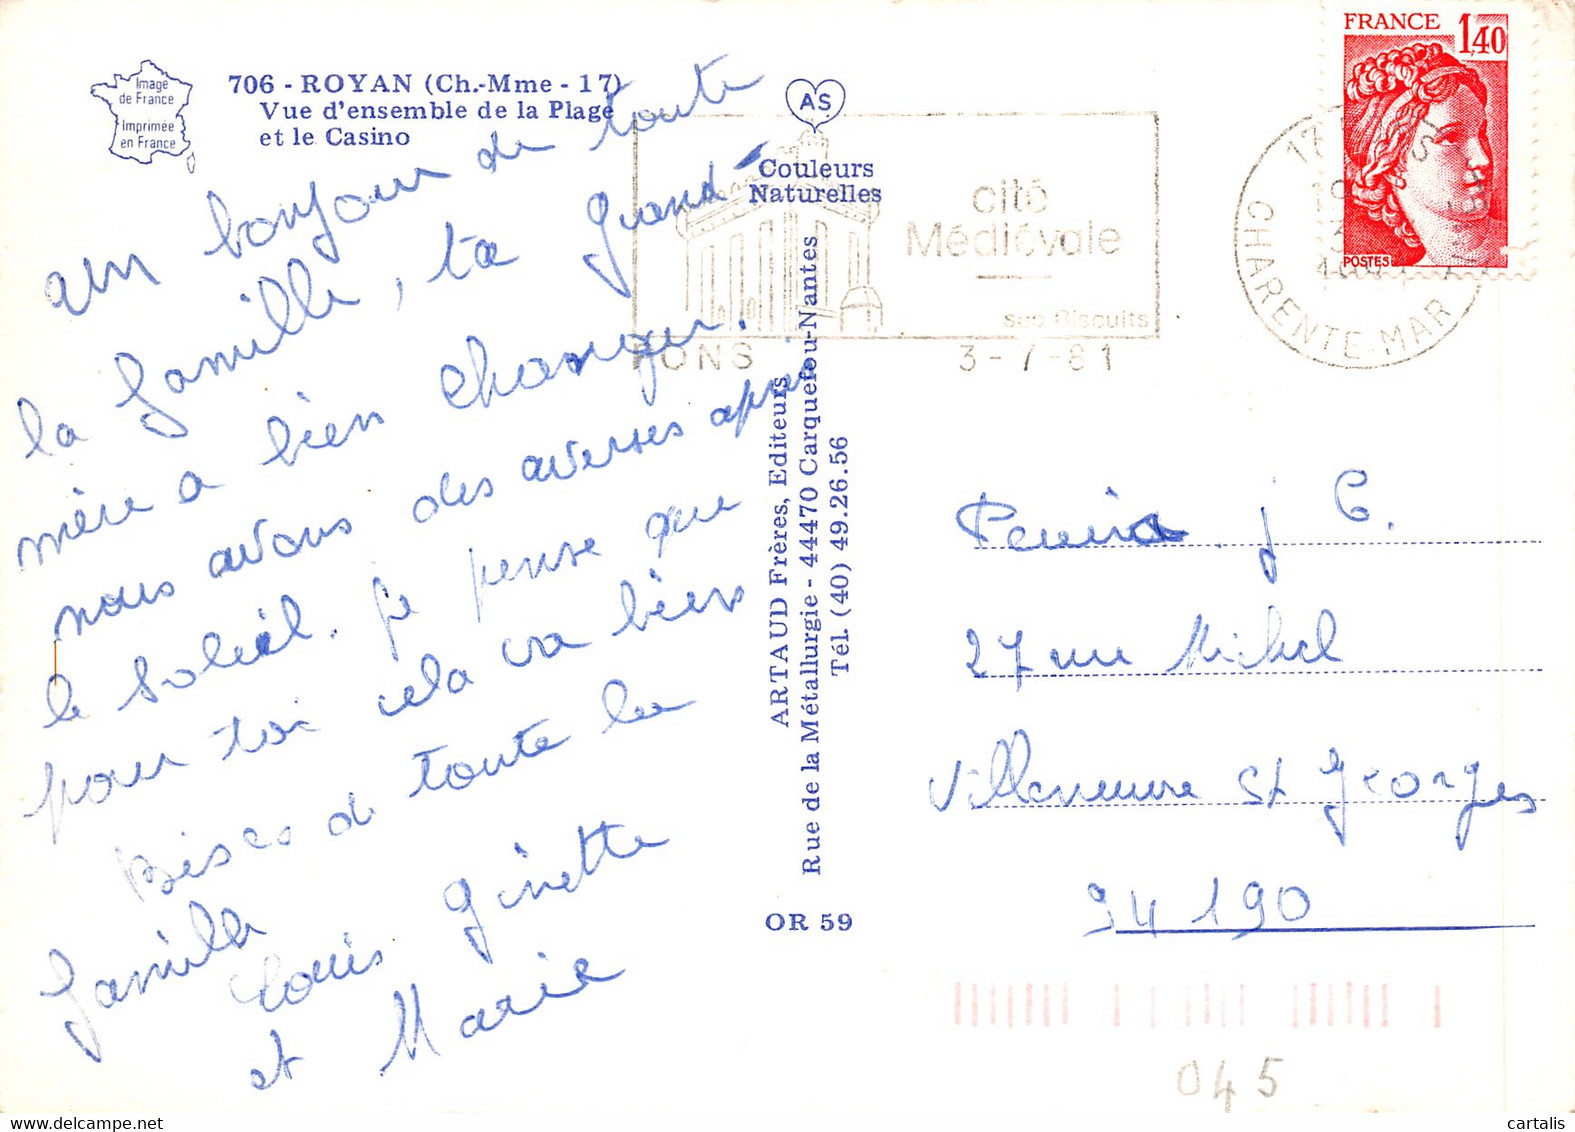 Image
de France
Imprimée
en France
706 - ROYAN (Ch.-Mme - 17)
Vue d'ensemble de la Plage
et le Casino
un bonjour de toute
la famille, ta grand-
mère a bien changer.
nous avons des averses après
le soleil. je pense que
pour toi cela va bien
Bises de toute la
famille
Louis Ginette
et Marie
AS
Couleurs
Naturelles
ARTAUD Frères, Editeurs
Rue de la Métallurgie - 44470 Carquefou-Nantes
Tél. (40) 49.26.56
OR 59
cité
Médiévale
ses Biscuits
PONS 3-7-81
17
CHARENTE-MAR
FRANCE 1,40
POSTES
j C.
27 rue Michel
Villeneuve St Georges
94190
045
cartalis.delcampe.net